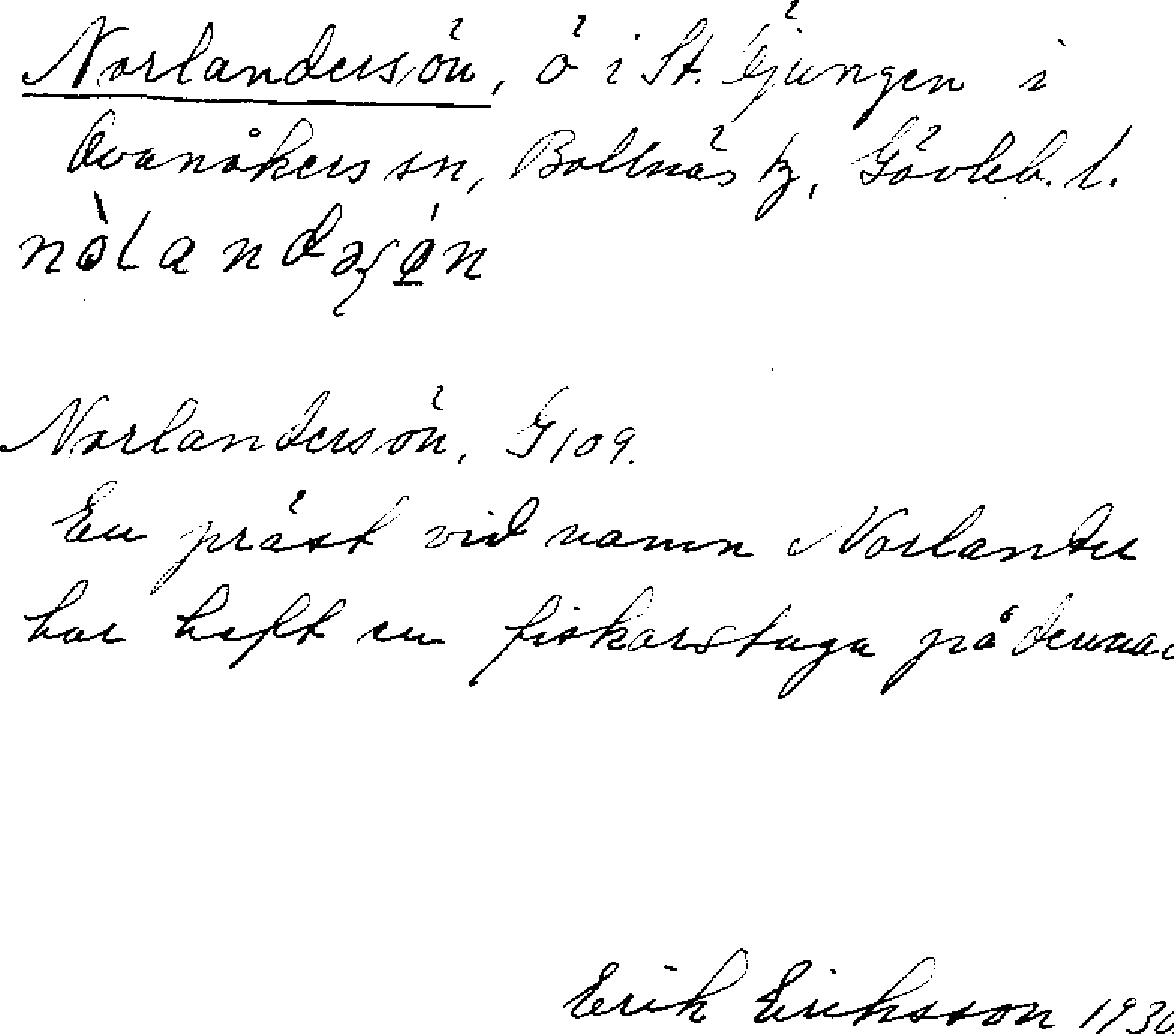 Norlandersön, ö i St. Öjungen i
Ovanåkers sn, Bollnäs tg, Gävleb. l.
Norlandersön, G 109.
En präst vid namn Norlander
har haft en fiskarstuga på denna
Erik Eriksson